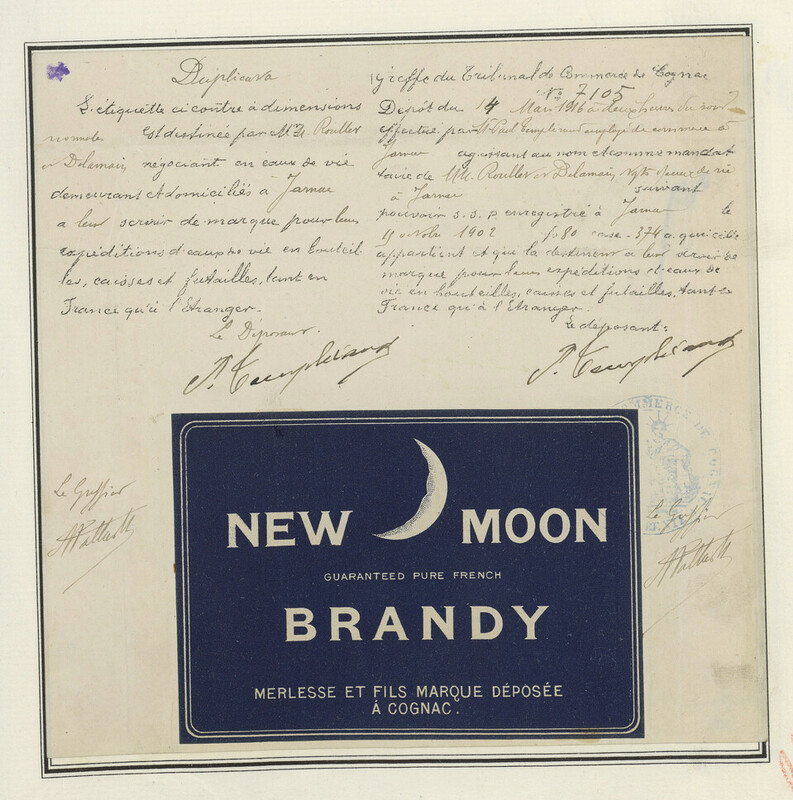 Duplicata
L'étiquette ci contre à dimensions
normales est destinée par MM. Roullet
et Delamain négociant en eaux de vie
demeurant et domiciliés à Jarnac
a leur servir de marque pour leurs
expéditions d'eaux de vie en bouteil-
les, caisses et futailles, tant en
France qu'à l'Etranger.
Le Déposant.
Greffe du Tribunal de Commerce de Cognac
No 7105
Dépôt du 14 Mars 1916 à deux heures du soir
effectué par M Paul employé de commerce à
Jarnac agissant au nom et comme mandat
taire de MM. Roullet et Delamain, Ngts en eaux de vie
à Jarnac suivant
pouvoir s.s.p. enregistré à Jarnac le
11 octobre 1902 fo 80 case 374 a qui elle
appartient et qui la destinent a leur servir de
marque pour leurs expéditions d'eaux de
vie en bouteilles, caisses et futailles, tant en
France qu'à l'Etranger.
Le déposant:
Le Greffier
Le Greffier
COMMERCE DE
NEW MOON
GUARANTEED PURE FRENCH
BRANDY
MERLESSE ET FILS MARQUE DÉPOSÉE
Á COGNAC.